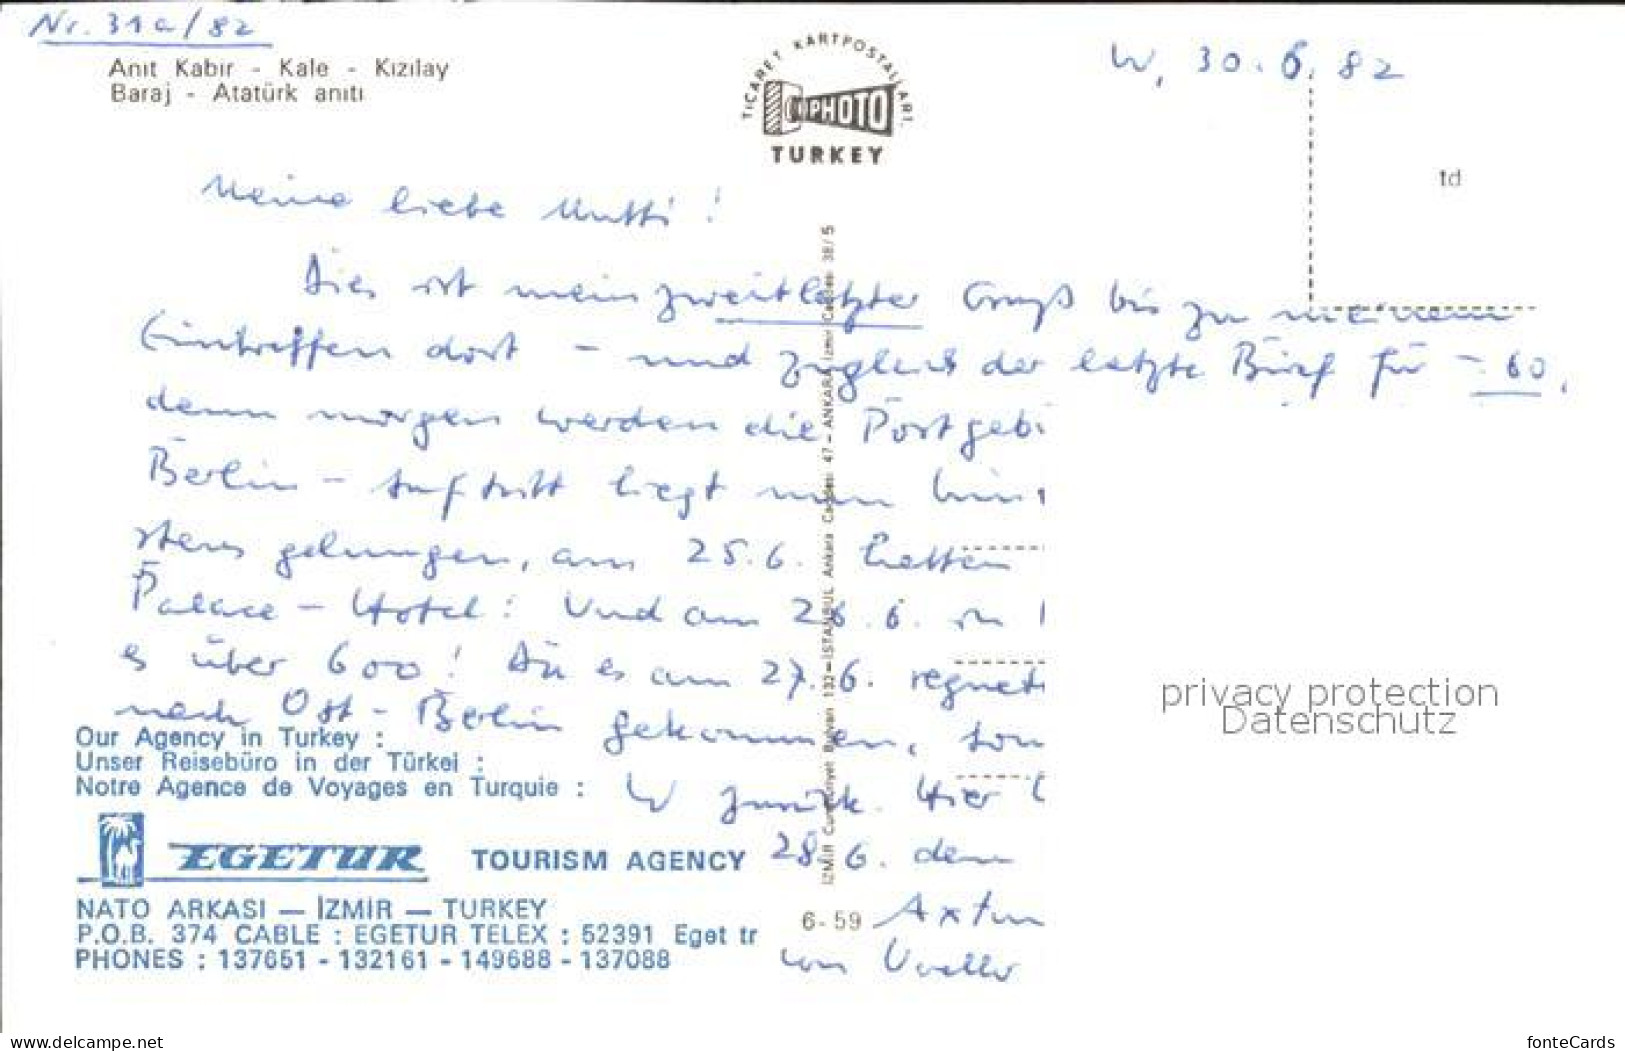 Nr. 31a/82
Anıt Kabir - Kale - Kızılay
Baraj - Atatürk anıtı
TİCARET KARTPOSTALLARI.
PHOTO
TURKEY
W, 30.6.82
td
Meine liebe Mutti!
Dies ist mein zweitletzter Gruß bis zu meinem
Eintreffen dort - und zugleich der letzte Brief für -.60,
denn morgen werden die Postgebü
Berlin - Auftritt liegt nun hin
stens gelungen, am 25.6. hatten
Palace - Hotel! Und am 26.6. in
es über 600! Da es am 27.6. regnet
nach Ost - Berlin gekommen, son
W zurück. Hier
28.6. den
von
İZMİR Cumhuriyet Bulvarı 132 - İSTANBUL Ankara Caddesi 47 - ANKARA İzmir Caddesi 38/5
Our Agency in Turkey :
Unser Reisebüro in der Türkei :
Notre Agence de Voyages en Turquie :
EGETUR TOURISM AGENCY
NATO ARKASI — İZMİR — TURKEY
P.O.B. 374 CABLE : EGETUR TELEX : 52391 Eget tr
PHONES : 137651 - 132161 - 149688 - 137088
6-59
privacy protection
Datenschutz
www.delcampe.net
fonteCards